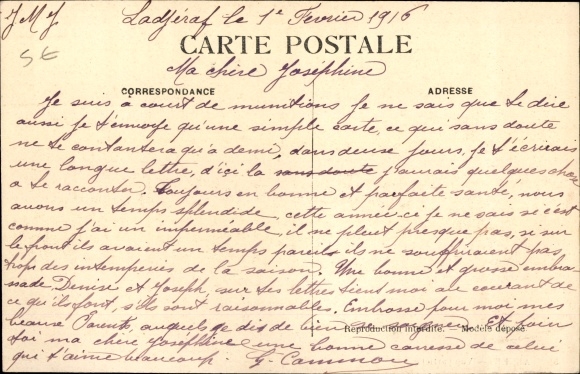 JMJ Ladjéraf le 1e Fevrier 1916
5E
CARTE POSTALE
Ma chère Joséphine
CORRESPONDANCE ADRESSE
Je suis à court de munitions je ne sais que te dire
aussi je t'envoye qu'une simple carte, ce qui sans doute
ne te contantera qu'a demi, dans deuse jours, je t'écrirais
une longue lettre, d'içi la sans doute j'aurais quelques chose
a te racconter. Toujours en bonne et parfaite santé, nous
avons un temps splendide, cette année-ci je ne sais si c'est
comme j'ai un impermeable, il ne pleut presque pas, si sur
le front ils avaient un temps pareils ils ne souffriraient pas
trop des intemperies de la saison. Une bonne et grosse embra
ssade Denise et Joseph, sur tes lettres tiens moi au courant de
ce qu'ils font, s'ils sont raisonnables. Embrosse pour moi mes
beause Parents, auquels je dis de bien Et
Reproduction interdite. Modèle déposé.
toi ma chère Joséphine une bonne caresse de celui
qui t'aime beaucoup. G.